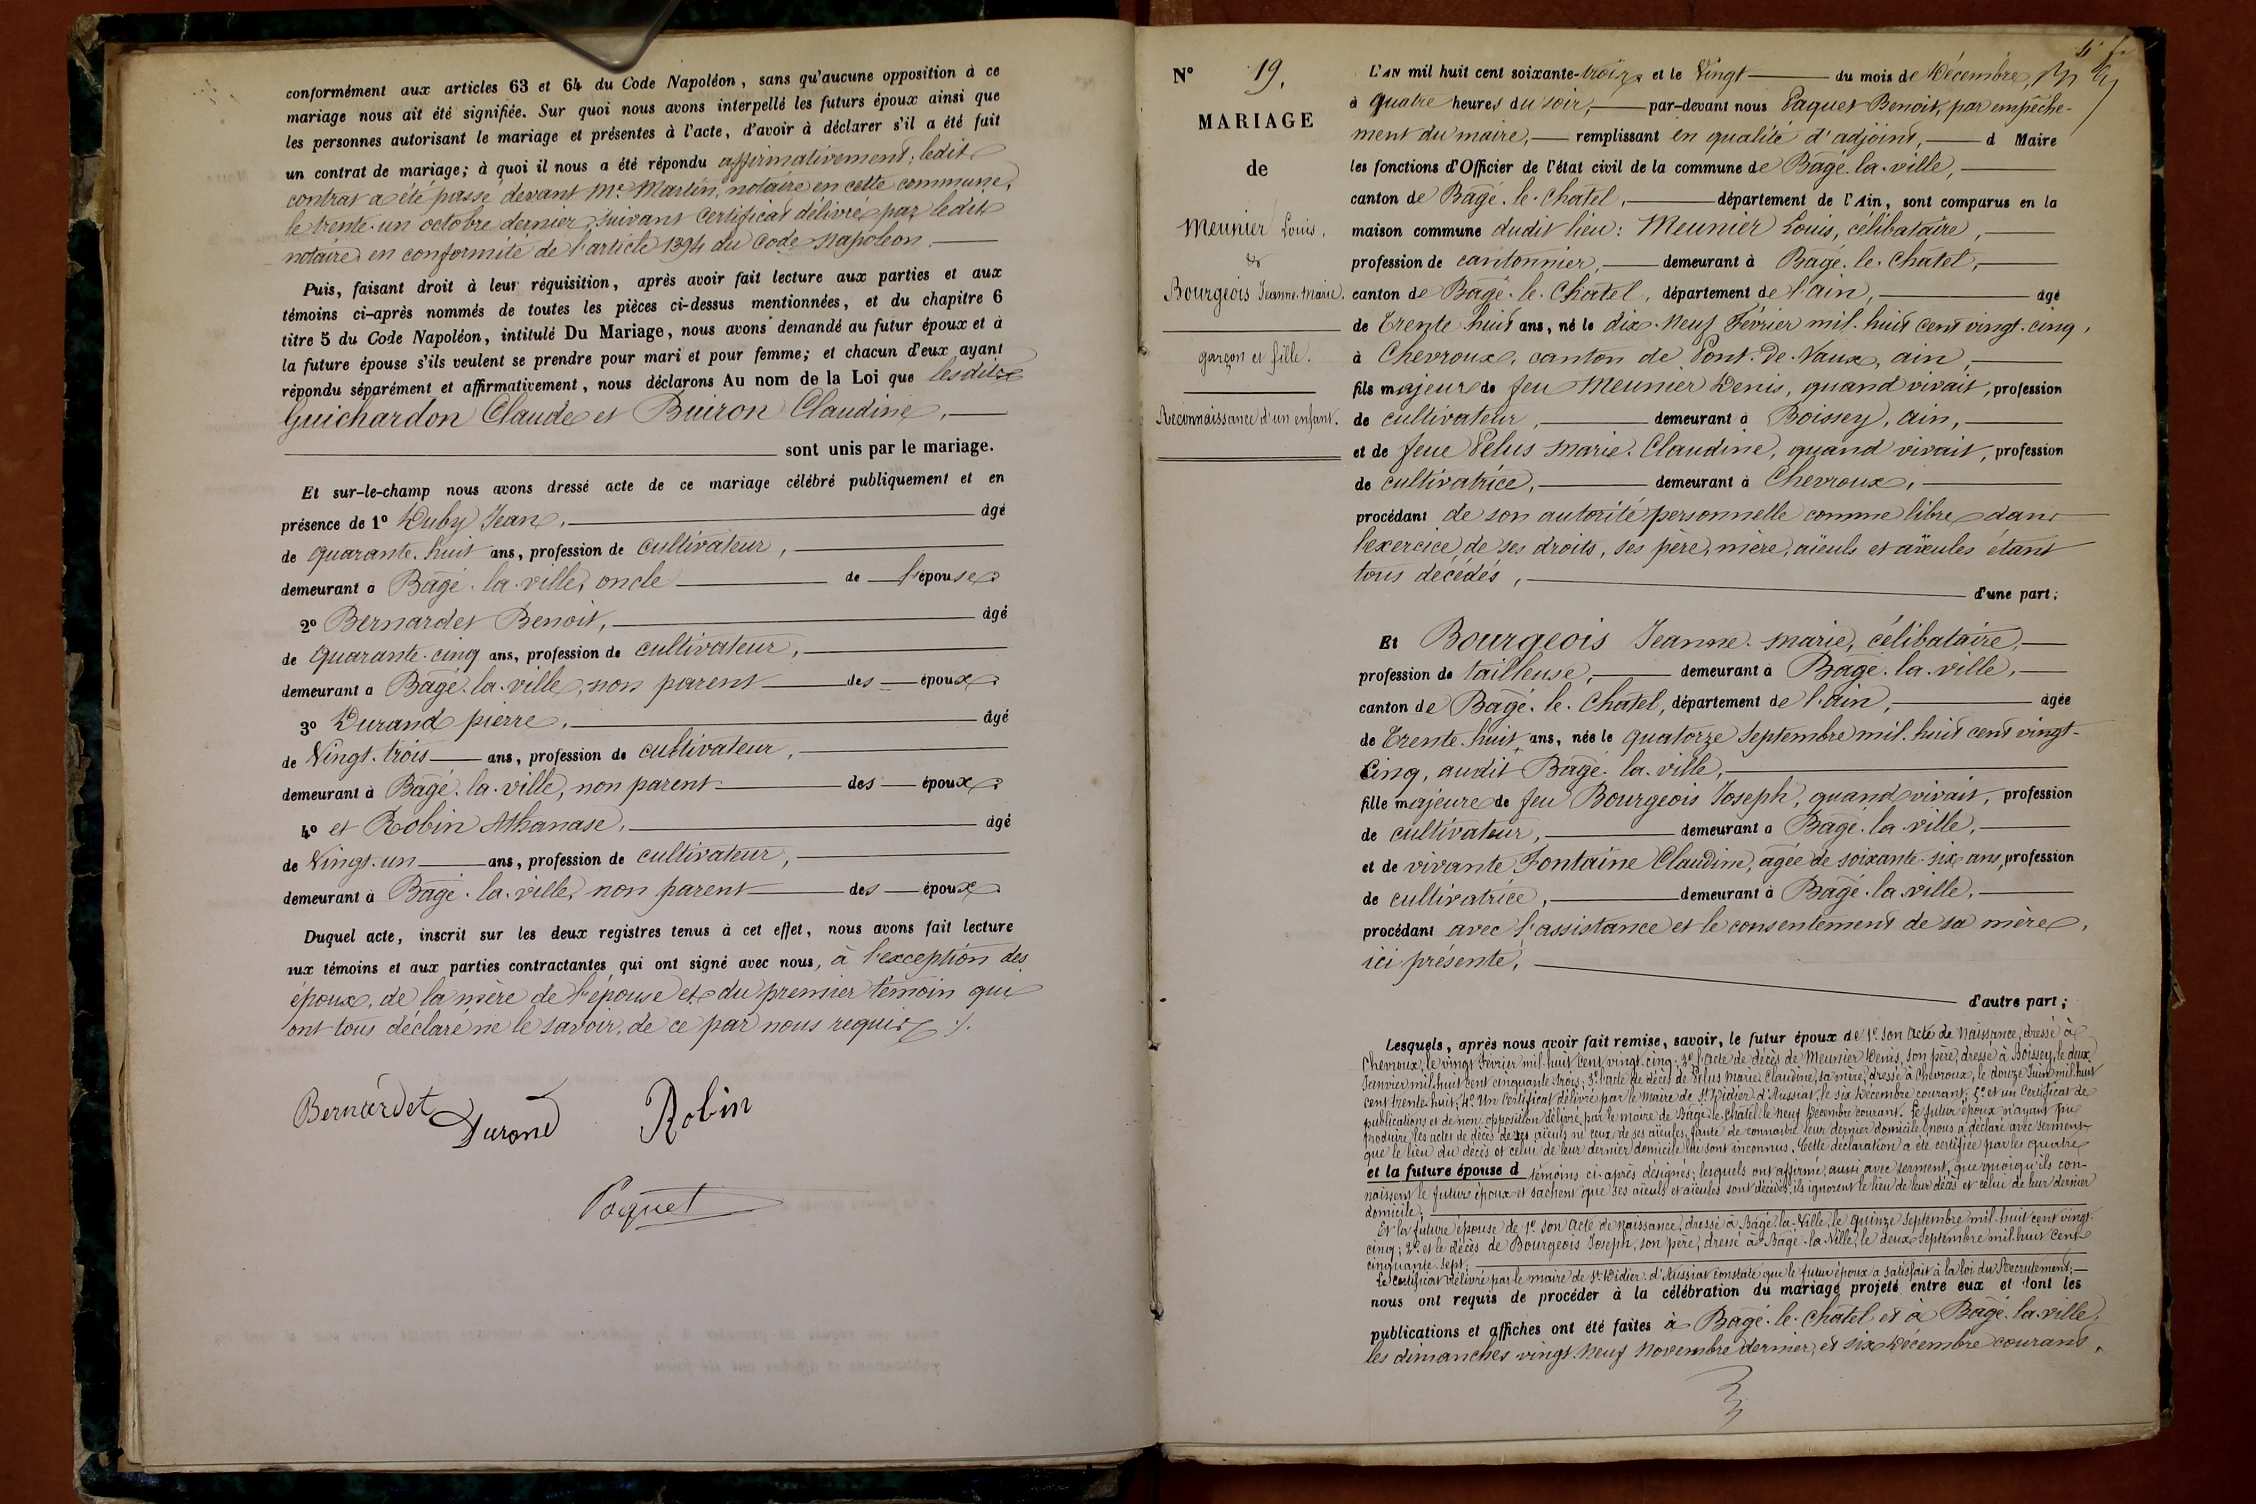 conformément aux articles 63 et 64 du Code Napoléon, sans qu'aucune opposition à ce
mariage nous ait été signifiée. Sur quoi nous avons interpellé les futurs époux ainsi que
les personnes autorisant le mariage et présentes à l'acte, d'avoir à déclarer s'il a été fait
un contrat de mariage; à quoi il nous a été répondu affirmativement; ledit
contrat a été passé devant Me Martin, notaire en cette commune,
le trente-un octobre dernier, suivant certificat délivré par ledit
notaire en conformité de l'article 1394 du Code Napoléon.
Puis, faisant droit à leur réquisition, après avoir fait lecture aux parties et aux
témoins ci-après nommés de toutes les pièces ci-dessus mentionnées, et du chapitre 6
titre 5 du Code Napoléon, intitulé Du Mariage, nous avons demandé au futur époux et à
la future épouse s'ils veulent se prendre pour mari et pour femme; et chacun d'eux ayant
répondu séparément et affirmativement, nous déclarons Au nom de la Loi que lesdits
Guichardon Claude et Buiron Claudine,
sont unis par le mariage.
Et sur-le-champ nous avons dressé acte de ce mariage célébré publiquement et en
présence de 1° Duby Jean, âgé
de quarante-huit ans, profession de cultivateur,
demeurant à Bâgé-la-ville, oncle de l'épouse
2° Bernardet Benoit, âgé
de quarante-cinq ans, profession de cultivateur,
demeurant à Bâgé-la-ville, non parent des époux
3° Durand pierre, âgé
de vingt-trois ans, profession de cultivateur,
demeurant à Bâgé-la-ville, non parent des époux
4° et Robin Athanase, âgé
de vingt-un ans, profession de cultivateur,
demeurant à Bâgé-la-ville, non parent des époux
Duquel acte, inscrit sur les deux registres tenus à cet effet, nous avons fait lecture
aux témoins et aux parties contractantes qui ont signé avec nous, à l'exception des
époux, de la mère de l'épouse et du premier témoin qui
ont tous déclaré ne le savoir, de ce par nous requis./.
Bernardet Durand Robin
Paquet
N° 19.
MARIAGE
de
Meunier Louis,
&
Bourgeois Jeanne-Marie.
garçon et fille.
Reconnaissance d'un enfant.
L'AN mil huit cent soixante-trois et le vingt du mois de Décembre,
à quatre heures du soir, par-devant nous Paquet Benoit, par empêche-
ment du maire, remplissant en qualité d'adjoint, d Maire
les fonctions d'Officier de l'état civil de la commune de Bâgé-la-ville,
canton de Bâgé-le-Châtel, département de l'Ain, sont comparus en la
maison commune dudit lieu: Meunier Louis, célibataire,
profession de cantonnier, demeurant à Bâgé-le-Châtel,
canton de Bâgé-le-Châtel, département de l'ain, âgé
de Trente-huit ans, né le dix-neuf Février mil-huit cent vingt-cinq,
à Chevroux, canton de Pont-de-Vaux, ain,
fils majeur de feu Meunier Denis, quand vivait, profession
de cultivateur, demeurant à Boissey, ain,
et de feue Pelus Marie-Claudine, quand vivait, profession
de cultivatrice, demeurant à Chevroux,
procédant de son autorité personnelle comme libre dans
l'exercice de ses droits, ses père, mère, aïeuls et aïeules étant
tous décédés, d'une part;
Et Bourgeois Jeanne-marie, célibataire,
profession de tailleuse, demeurant à Bâgé-la-ville,
canton de Bâgé-le-Châtel, département de l'ain, âgée
de Trente-huit ans, née le quatorze Septembre mil-huit cent vingt-
cinq, audit Bâgé-la-ville,
fille majeure de feu Bourgeois Joseph, quand vivait, profession
de cultivateur, demeurant à Bâgé-la-ville,
et de vivante Fontaine Claudine, âgée de soixante-six ans, profession
de cultivatrice, demeurant à Bâgé-la-ville,
procédant avec l'assistance et le consentement de sa mère,
ici présente,
d'autre part;
Lesquels, après nous avoir fait remise, savoir, le futur époux de 1° son acte de Naissance, dressé à
Chevroux, le vingt Février mil-huit cent vingt-cinq; 2° l'acte de décès de Meunier Denis, son père, dressé à Boissey, le deux
Janvier mil-huit cent cinquante-trois; 3° l'acte de décès de Pelus Marie-Claudine, sa mère, dressé à Chevroux, le douze Juin mil-huit
cent trente-huit; 4° Un Certificat délivré par le maire de St Didier-d'Aussiat, le six Décembre courant; 5° et un Certificat de
publications et de non opposition délivré par le maire de Bâgé-le-Châtel le neuf Décembre courant. Le futur époux n'ayant pu
produire les actes de décès de ses aïeuls ni ceux de ses aïeules, faute de connaître leur dernier domicile, nous a déclaré avec serment
que le lieu du décès et celui de leur dernier domicile lui sont inconnus. Cette déclaration a été certifiée par les quatre
et la future épouse d témoins ci-après désignés, lesquels ont affirmé, aussi avec serment, que quoiqu'ils con-
naissent le futur époux et sachent que ses aïeuls et aïeules sont décédés, ils ignorent le lieu de leur décès et celui de leur dernier
domicile;
Et la future épouse de 1° son acte de naissance, dressé à Bâgé-la-Ville, le quinze Septembre mil-huit cent vingt-
cinq; 2° et le décès de Bourgeois Joseph, son père, dressé à Bâgé-la-Ville, le deux Septembre mil-huit cent
cinquante-sept;
Le Certificat délivré par le maire de St Didier-d'Aussiat constate que le futur époux a satisfait à la loi du Recrutement;
nous ont requis de procéder à la célébration du mariage projeté entre eux et dont les
publications et affiches ont été faites à Bâgé-le-Châtel et à Bâgé-la-ville,
les dimanches vingt-neuf Novembre dernier, et six Décembre courant,